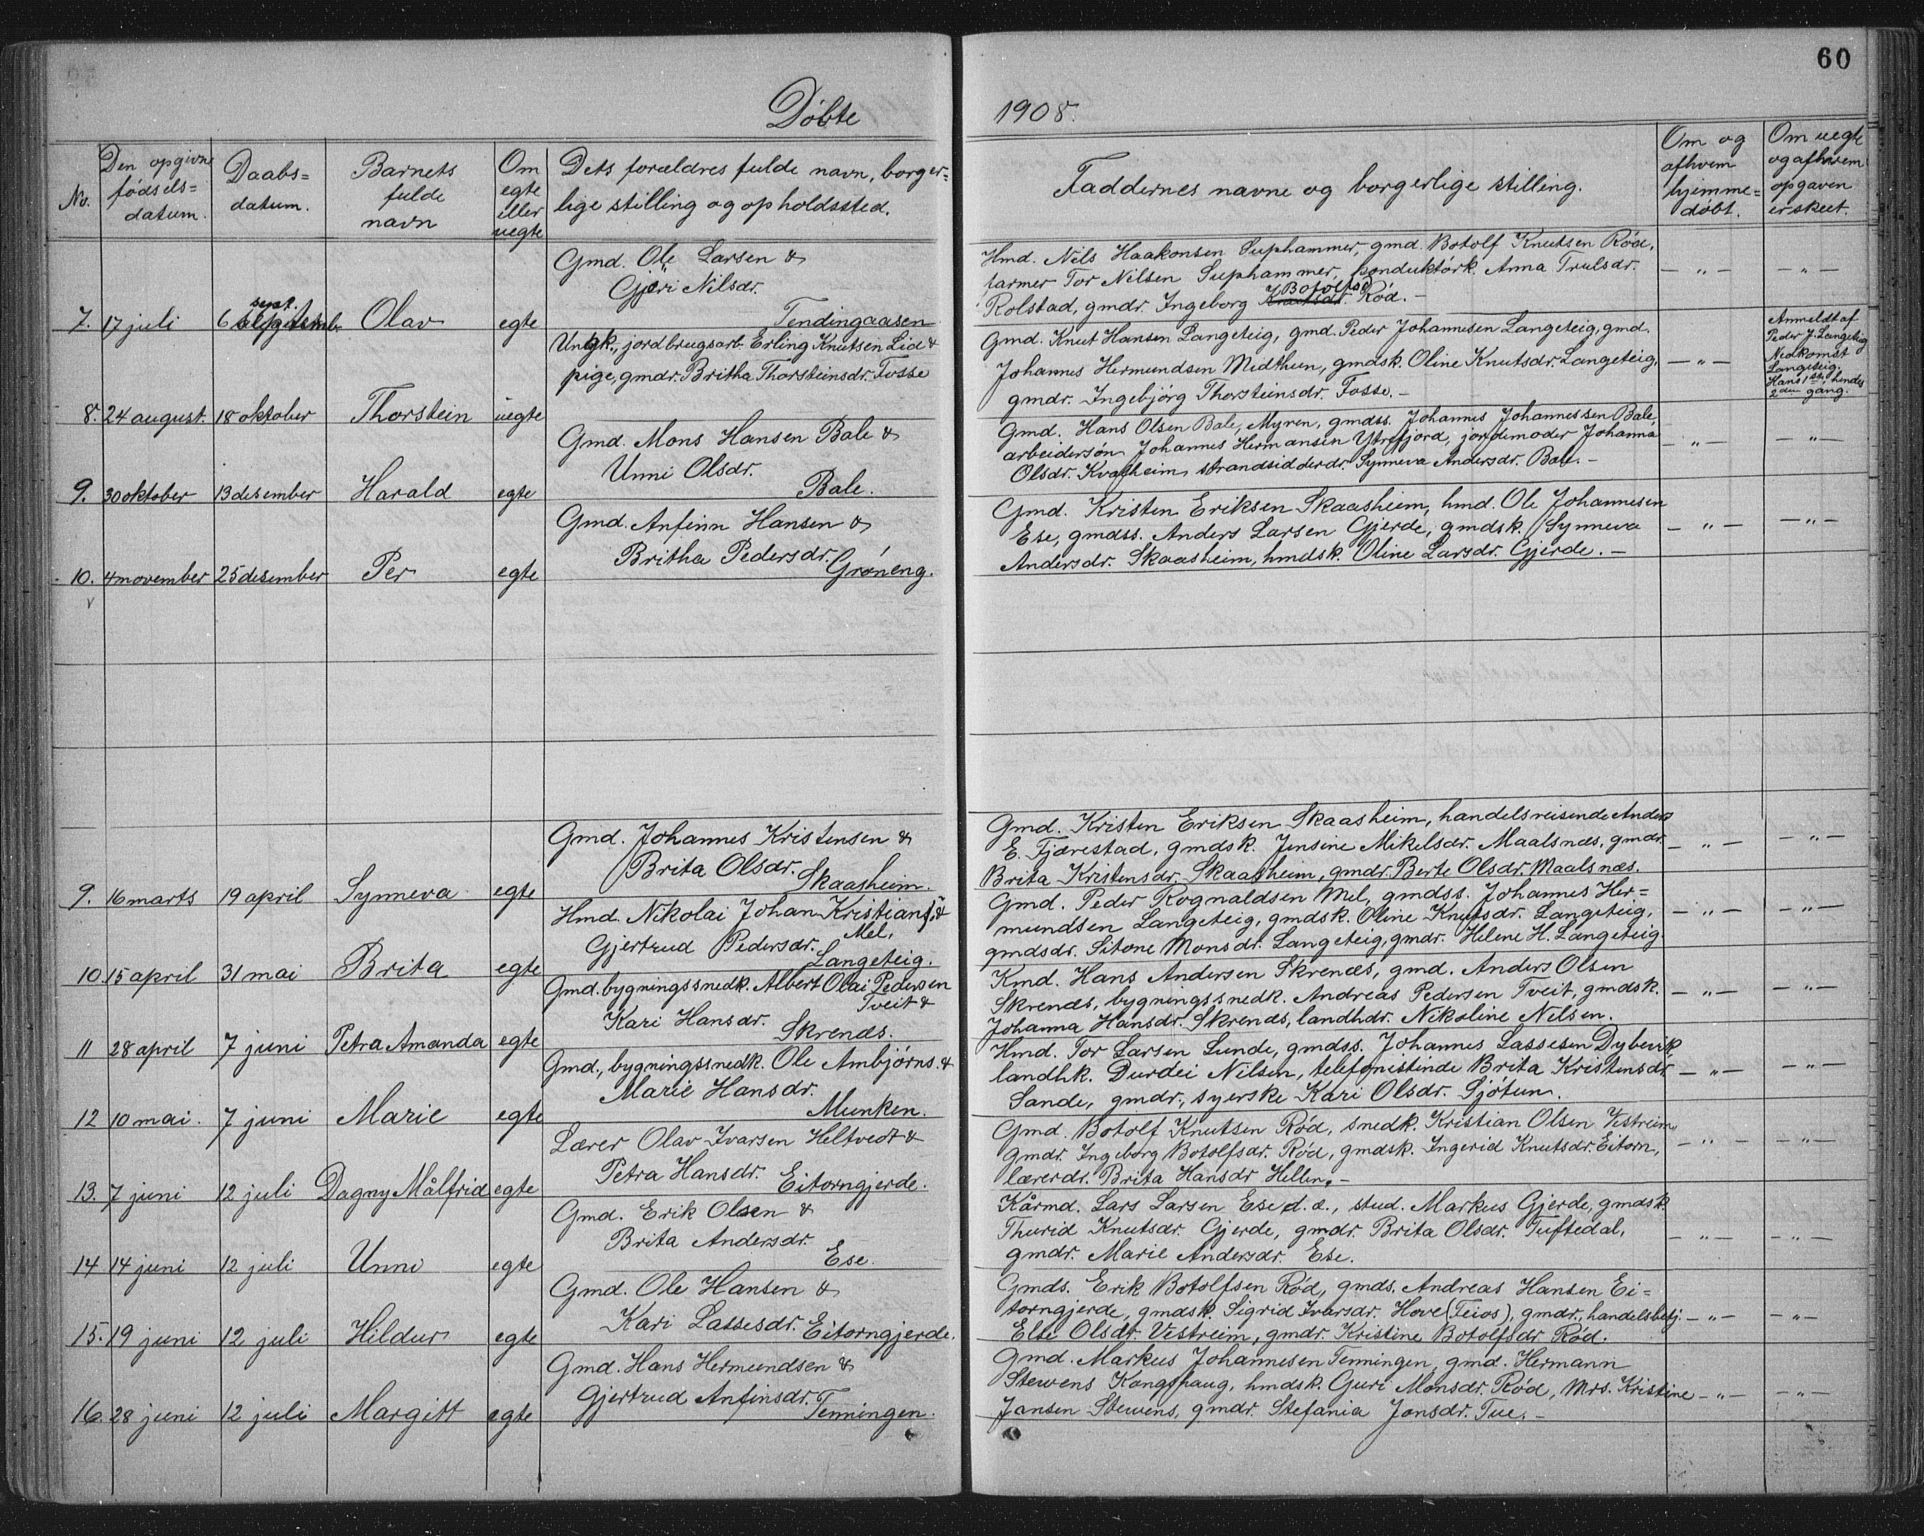 60
Døbte 1908.
No.
Den opgivne
fødsels=
datum.
Daabs=
datum.
Barnets
fulde
navn
Om
egte
eller
uegte
Dets forældres fulde navn, borger=
lige stilling og opholdssted.
Faddernes navne og borgerlige stilling.
Om og
afhvem
hjemme=
døbt.
Om uegte
og afhvem
opgaven
er skeet.
Gmd. Ole Larsen &
Gjøri Nilsdr.
Tendingaasen
7. 17 juli 6 sept. Olav egte
Hmd. Nils Haakonsen Suphammer, gmd. Botolf Knutsen Rød,
farmer Tor Nilsen Suphammer, konduktørk. Anna Trulsdr.
Rolstad, gmdr. Ingeborg Knutsdr. Botolfsd. Rød. —
— " — — " —
Ungk., jordbrugsarb. Erling Knutsen Lid &
pige, gmdr. Britha Thorsteinsdr. Fosse
8. 24 august. 18 oktober Thorstein uegte
Gmd. Knut Hansen Langeteig, gmd. Peder Johannesen Langeteig, gmd.
Johannes Hermundsen Midthun, gmdsk. Oline Knutsdr. Langeteig,
gmdr. Ingebjörg Thorsteinsdr. Fosse. —
— " —
Anmeldt af
Peder J. Langeteig
Nedkomst
Langeteig,
Hans 1ste, hendes
2den gang.
Gmd. Mons Hansen Bale &
Unni Olsdr.
Bale.
9. 30 oktober 13 desember Harald egte
Gmd. Hans Olsen Bale, Myren, gmdss. Johannes Johannessen Bale,
arbeidersøn Johannes Hermansen Ytrefjord, jordemoder Johanna
Olsdr. Kvalheim, strandsidderdr. Synneva Andersdr. Bale. —
— " — — " —
Gmd. Anfinn Hansen &
Britha Pedersdr.
Grøneng.
10. 4 november 25 desember Per egte
Gmd. Kristen Eriksen Skaasheim, hmd. Ole Johannesen
Ese, gmdss. Anders Larsen Gjerde, gmdsk. Synneva
Andersdr. Skaasheim, hmdsk. Oline Larsdr. Gjerde. —
— " — — " —
Gmd. Johannes Kristensen &
Brita Olsdr.
Skaasheim.
9. 16 marts 19 april Synneva egte
Gmd. Kristen Eriksen Skaasheim, handelsreisende Anders
E. Tjærestad, gmdsk. Jensine Mikelsdr. Maalsnæs, gmdr.
Brita Kristensdr. Skaasheim, gmdr. Berte Olsdr. Maalsnæs.
— " — — " —
Hmd. Nikolai Johan Kristians. &
Mel,
Gjertrud Pedersdr.
Langeteig.
10. 15 april 31 mai Brita egte
Gmd. Peder Rognaldsen Mel, gmdss. Johannes Her=
mundsen Langeteig, gmdsk. Oline Knutsdr. Langeteig,
gmdsdr. Sitone Monsdr. Langeteig, gmdr. Helene H. Langeteig.
— " — — " —
Gmd. bygningssnedk. Albert Olai Pedersen
Tveit &
Kari Hansdr.
Skrends.
11 28 april 7 juni Petra Amanda egte
Kmd. Hans Andersen Skrenæs, gmd. Anders Olsen
Skrendes, bygningssnedk. Andreas Pedersen Tveit, gmdsk.
Johanna Hansdr. Skrends, landhdr. Nikoline Nilsen.
— " — — " —
Gmd., bygningssnedk. Ole Ambjørns. &
Marie Hansdr.
Munken.
12 10 mai. 7 juni Marie egte
Hmd. Tor Larsen Lunde, gmdss. Johannes Lassesen Dybevik,
landhk. Durdei Nilsen, telefonistinde Brita Kristensdr.
Sande, gmdr., syerske Kari Olsdr. Sjøtun.
— " — — " —
Lærer Olav Ivarsen Heltvedt &
Petra Hansdr.
Eitorngjerde.
13. 7 juni 12 juli Dagny Målfrid egte
Gmd. Botolf Knutsen Rød, snedk. Kristian Olsen Vestreim
gmdr. Ingeborg Botolfsdr. Rød, gmdsk. Ingerid Knutsdr. Eitorn,
lærerdr. Brita Hansdr Hellen. —
— " — — " —
Gmd. Erik Olsen &
Brita Andersdr.
Ese.
14 14 juni 12 juli Unni egte
Kårmd. Lars Larsen Ese d.æ., stud. Markus Gjerde, gmdsk.
Thurid Knutsdr. Gjerde, gmdr. Brita Olsdr. Tuftedal,
gmdr. Marie Andersdr. Ese.
— " — — " —
Gmd. Ole Hansen &
Kari Lassesdr. Eitorngjerde.
15. 19 juni 12 juli Hildur egte
Gmds. Erik Botolfsen Rød, gmds. Andreas Hansen Ei=
torngjerde, gmdsk. Sigrid Ivarsdr. Hove (Feios), gmdr., handelsbetj.
Else Olsdr. Vestreim, gmdr. Kristine Botolfsdr Rød.
— " — — " —
Gmd. Hans Hermundsen &
Gjertrud Anfinsdr.
Tenningen.
16. 28 juni 12 juli Margitt egte
Gmd. Markus Johannesen Tenningen, gmd. Hermann
Stewens Kongshaug, hmdsk. Guri Monsdr. Rød, Mrs. Kristine
Jansen Stewens, gmdr. Stefania Jonsdr. Tue. —
— " — — " —